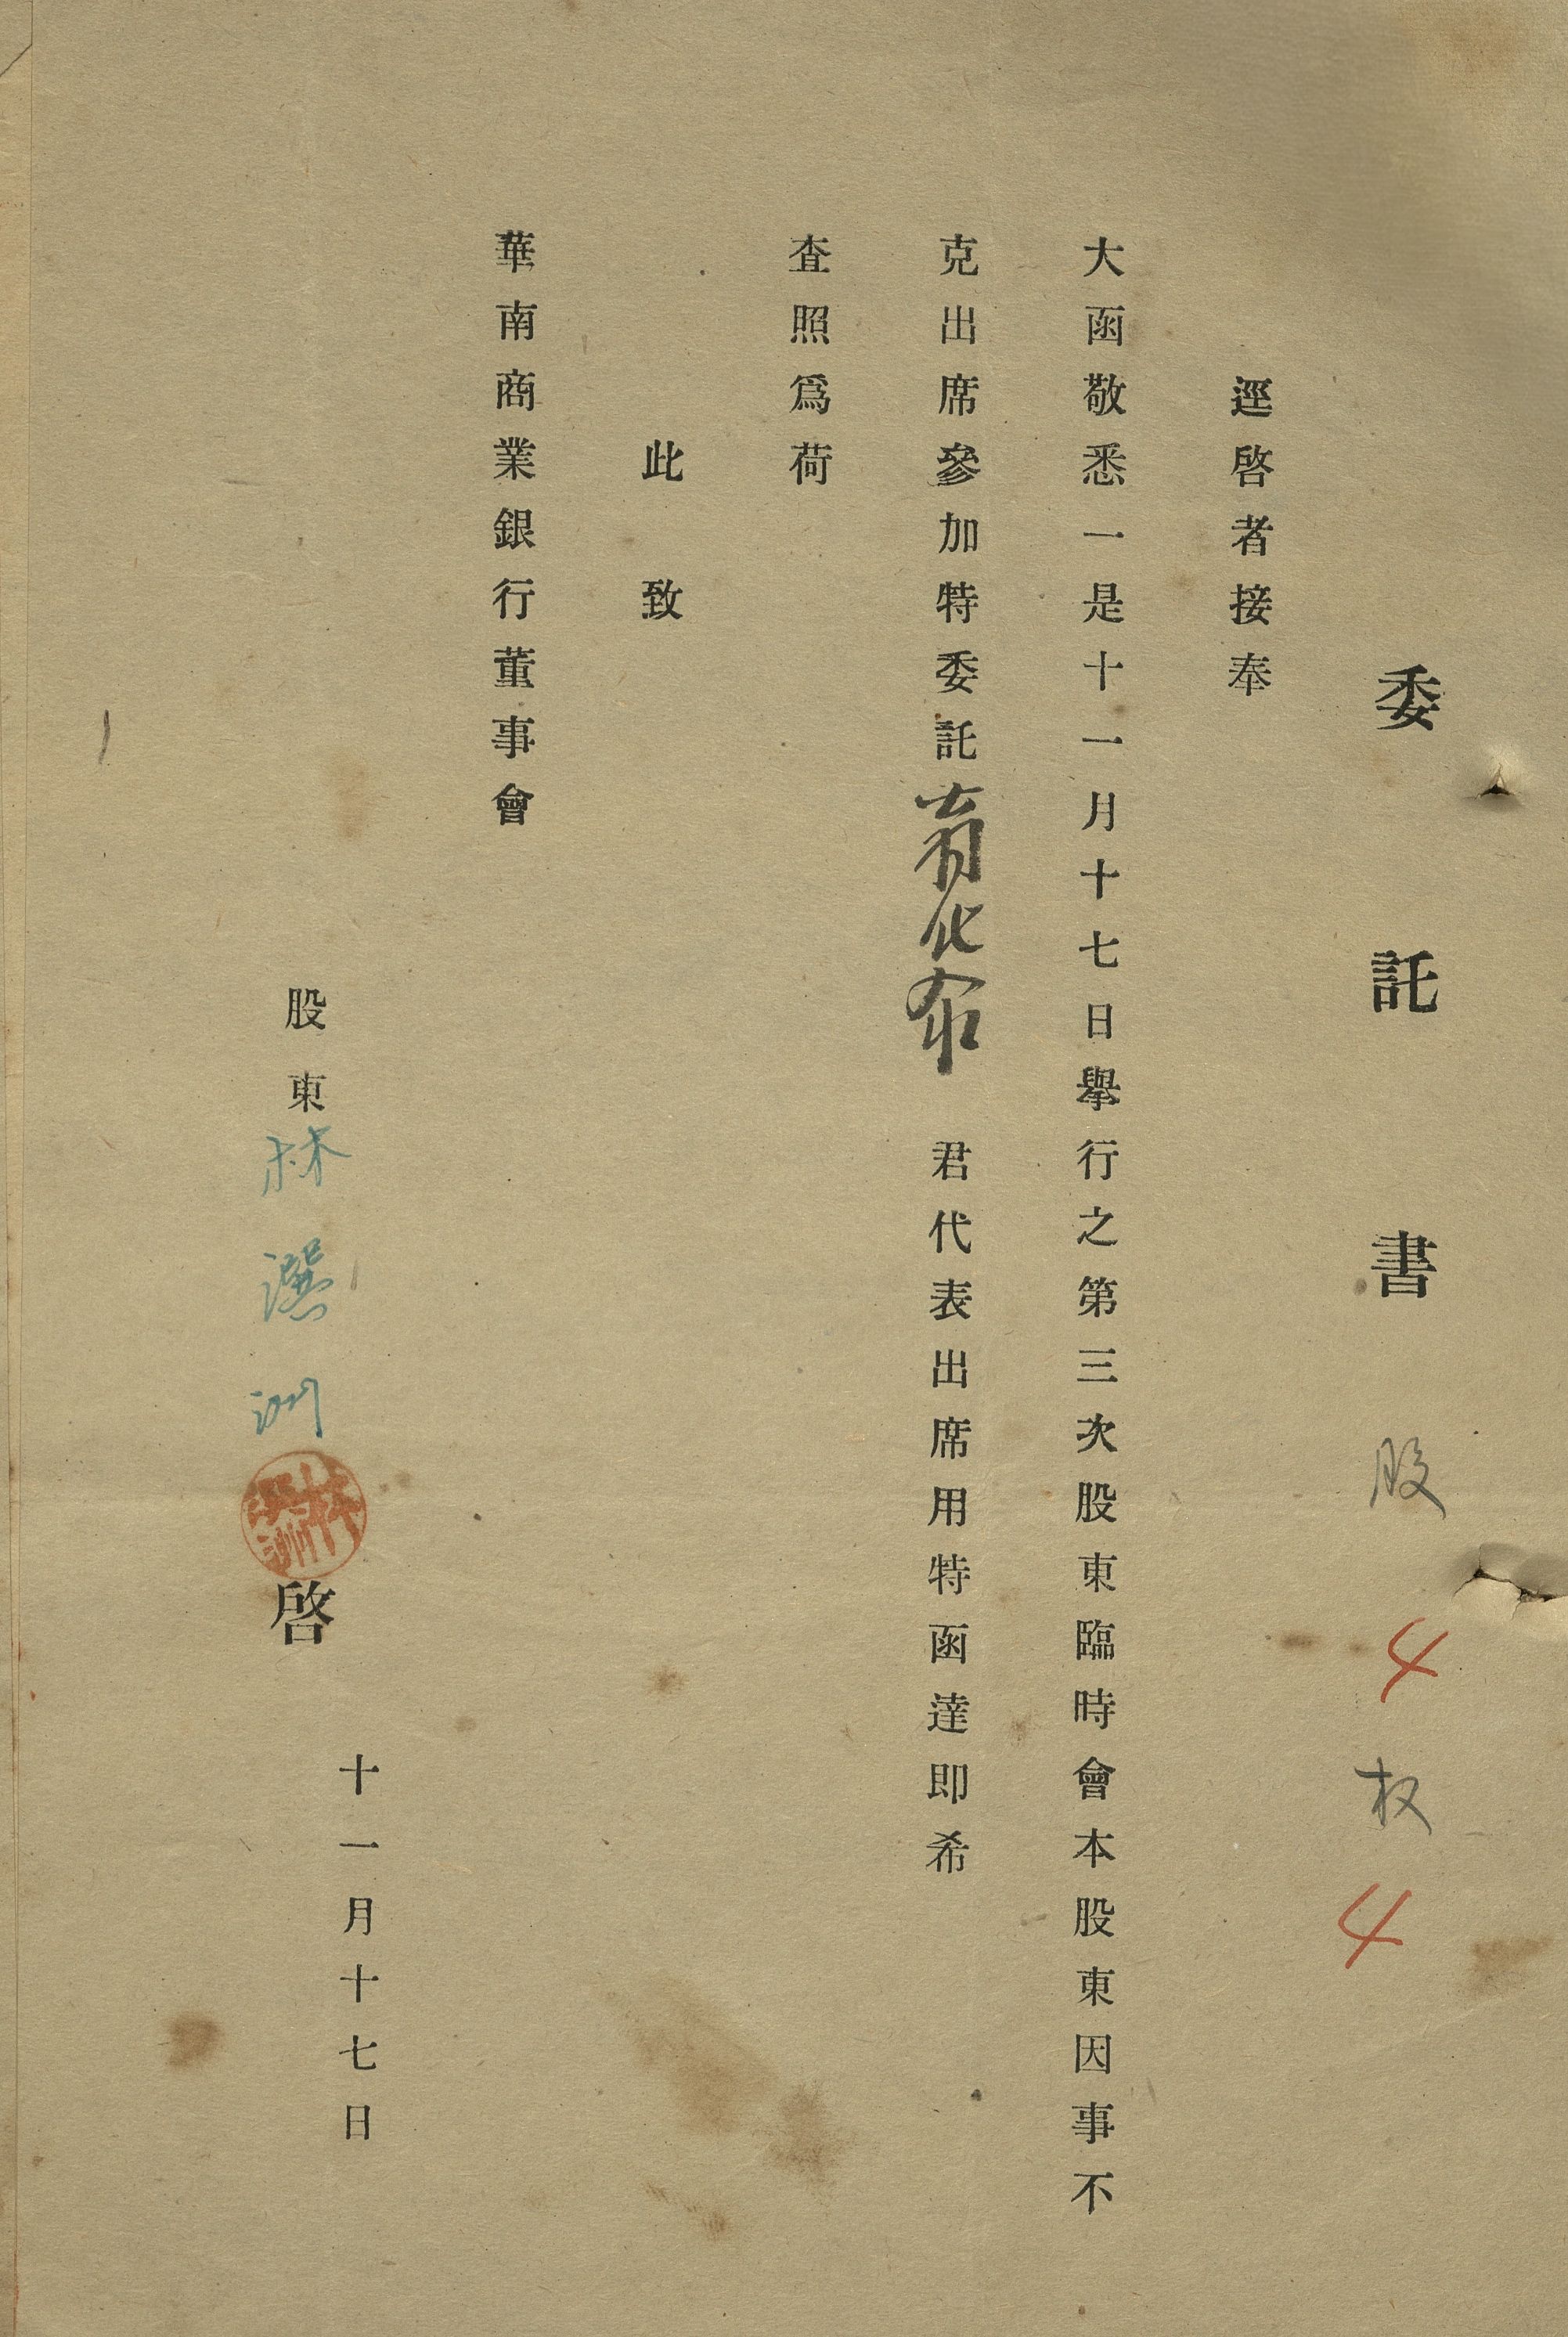 委託書 股 4 权 4
逕啓者接奉
大函敬悉一是十一月十七日舉行之第三次股東臨時會本股東因事不
克出席參加特委託 君代表出席用特函達即希
查照爲荷
此致
華南商業銀行董事會
股東 林選洲 啓
十一月十七日